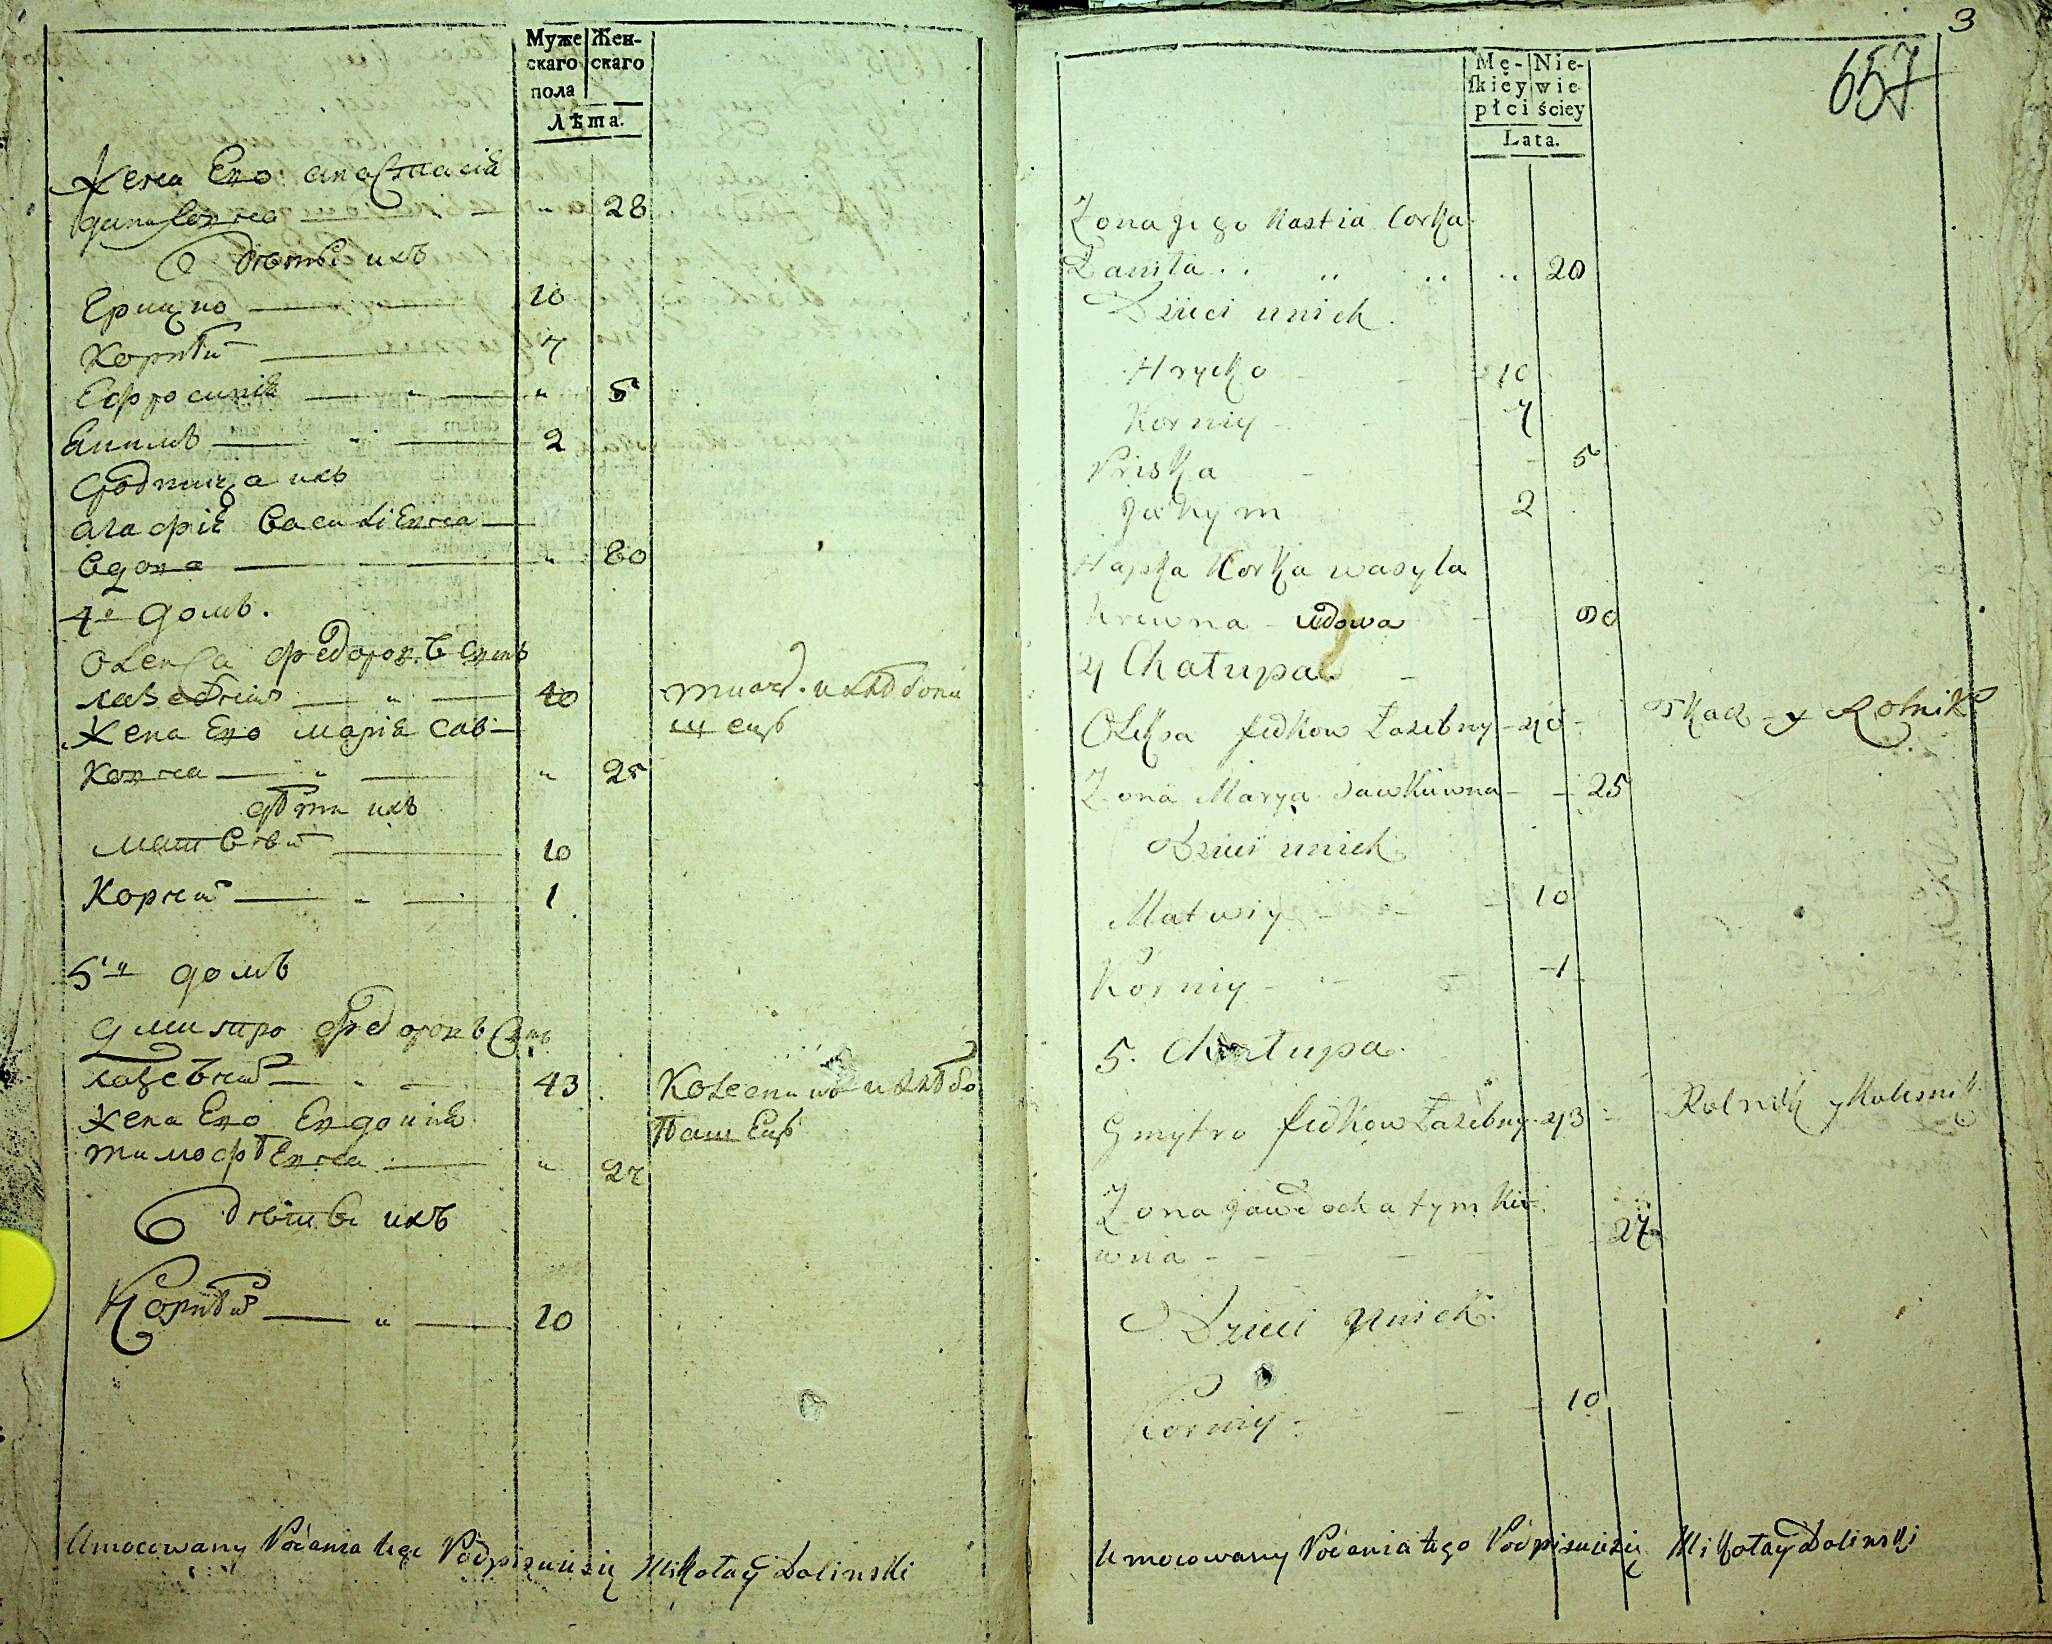 Муже Жен-
скаго скаго
пола
Лѣта.
Жена Его анастасиѣ
данилонка — „ 28
Дѣти ихъ
Грицко — 10
Корнѣй — 7
Ефросиниѣ — „ — „ 5
Екимъ — „ — 2
Сродница ихъ
агафиѣ Василиевна —
вдова — „ 80
4й домъ.
Олекса федоровъ Снъ
лазебний — „ — 40 ткачъ. и хлѣбопа
Жена Его мариѣ сав- шецъ
ковна — „ — „ 25
дѣти ихъ
матвѣй — 10
Корней — „ — 1
5й домъ
дмитро федоровъ Снъ
лазебный — „ — 43 Колесникъ и хлѣбо
жена Его Евдокиѣ пашецъ
тимофѣевна — „ 27
Дѣти ихъ
Корнѣй — „ — 10
Umocowany Podania tego Podpisuie się Mikołay Dolinski
3
657
Mę- Nie-
ſkiéy wie-
płci ściey
Lata.
Zona Jego Nastia Corka
Daniła .. „ .. .. 20
Dzieci unich.
Hrycko - - 10
Korniy - - 7
Priska - - - 5
Jakym 2
Hapka Corka wasyla
Krewna - Wdowa - 80
4 Chałupa. -
Oleksa fedkow Łazebny - 40 - Tkacz y Rolnik
Zona Marya Sawkiwna - - 25
Dzieci unich.
Matwiy - - - 10
Korniy - - - 1
5. Chałupa.
Dmytro fedkow Łazebny. 43 - Rolnik y Kolesnik
Zona Jawdocha tymki-
wna - - - - 27
Dzieci unich.
Korniy - - - 10
Umocowany Podania tego Podpisuie się Mikołay Dolinski